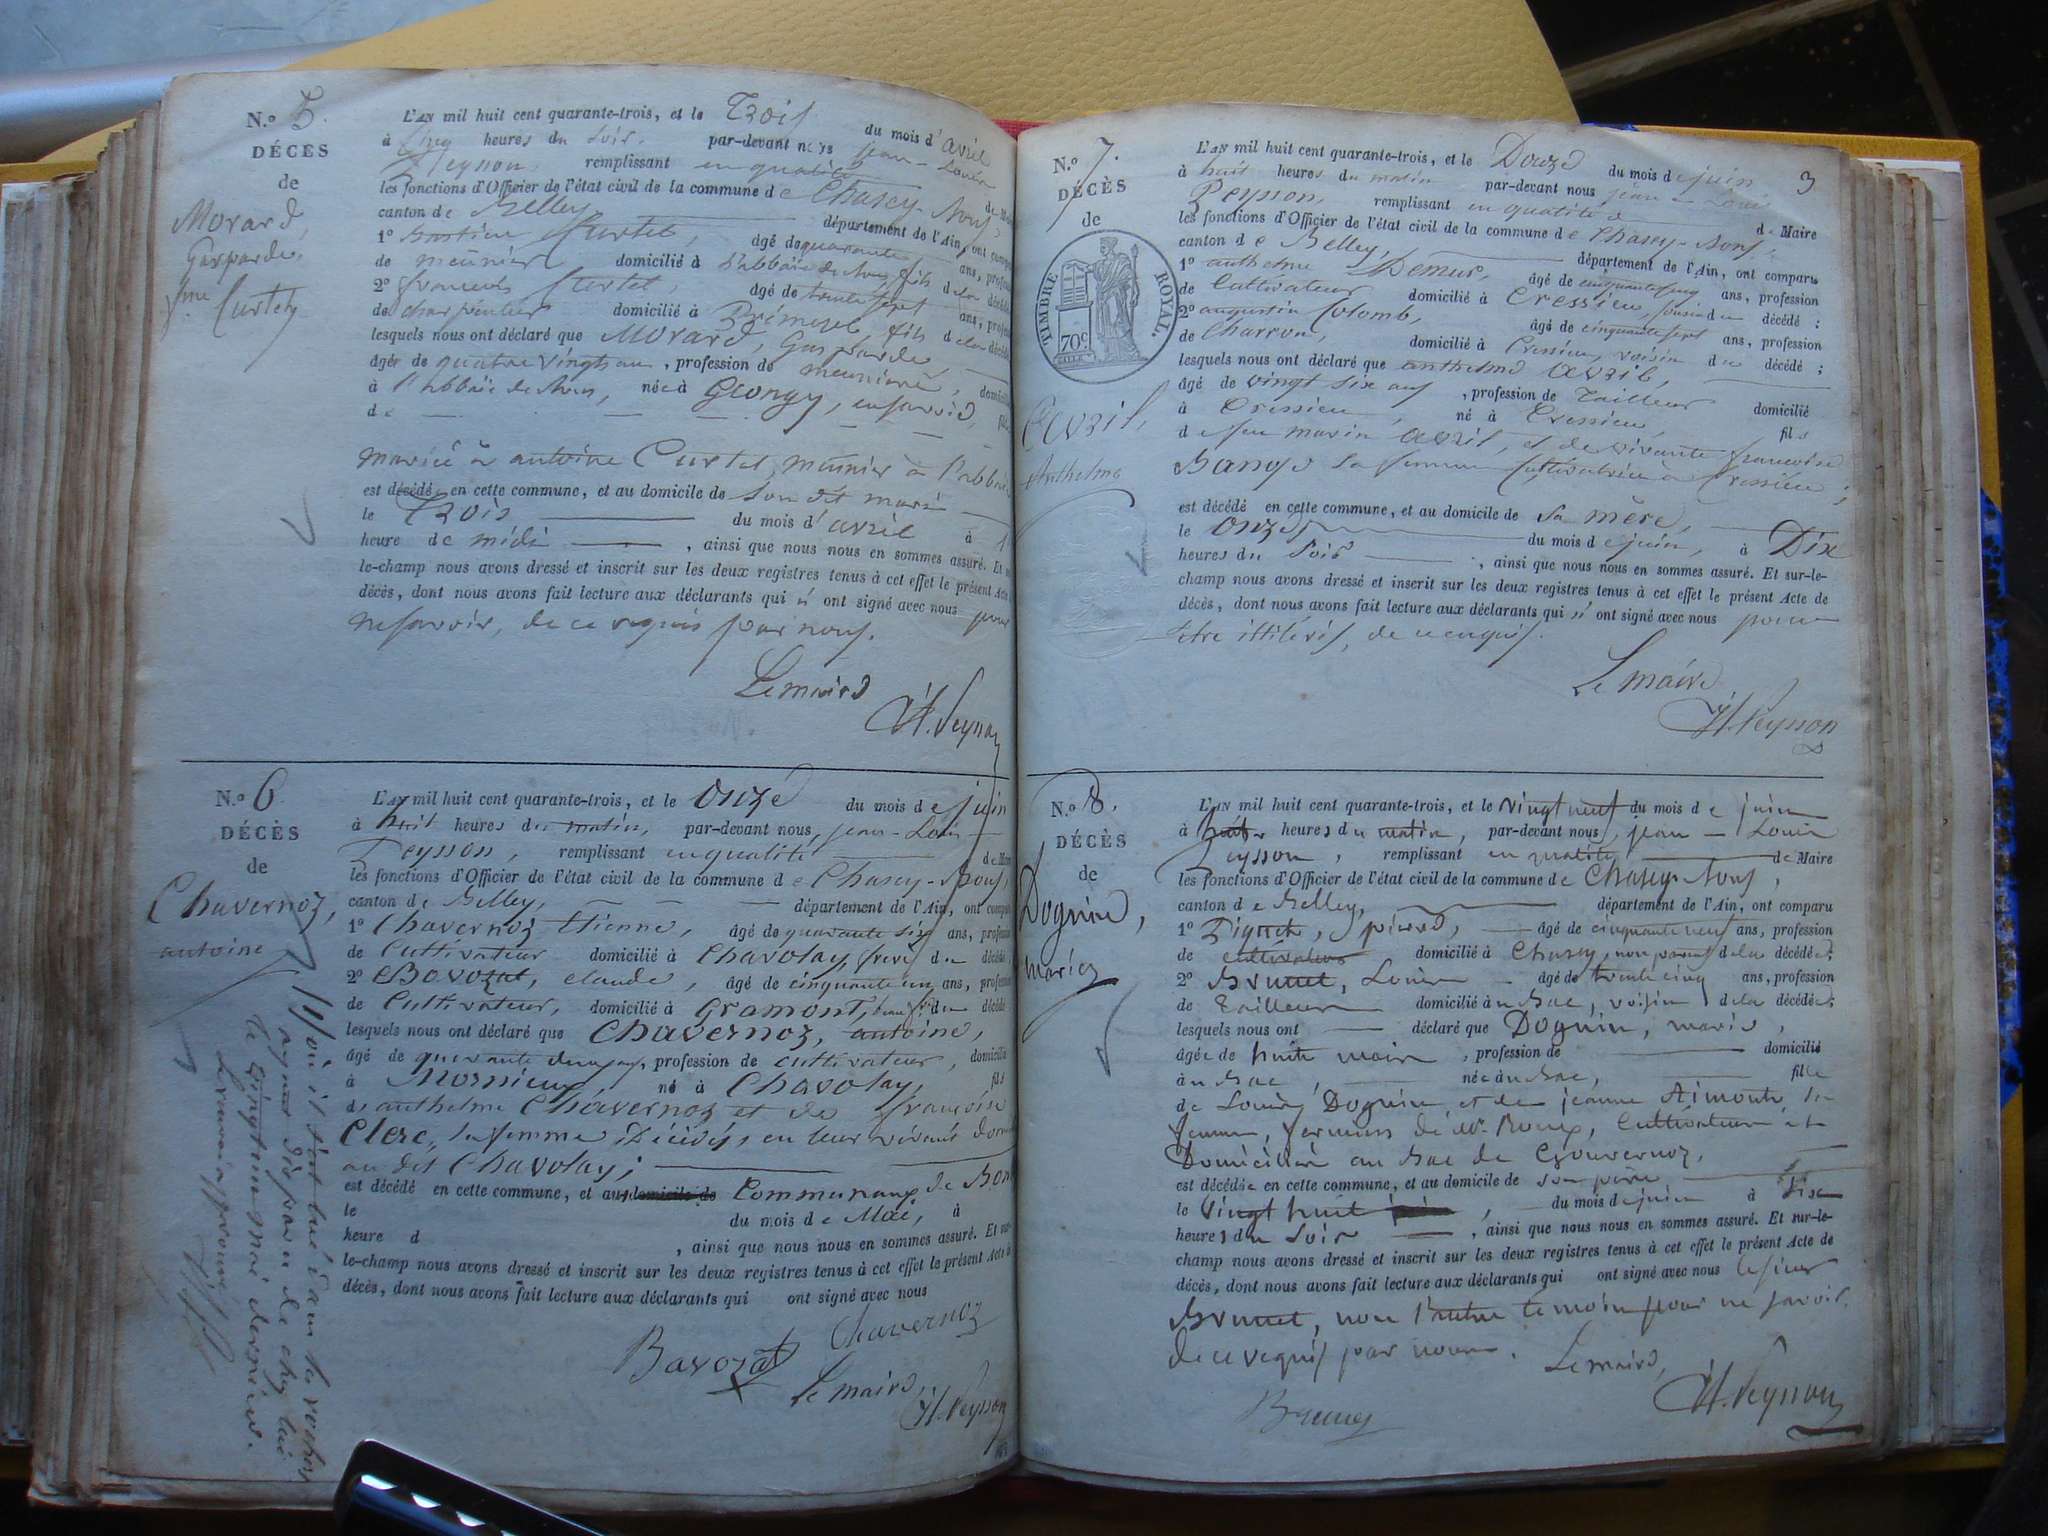 N.o 5.
DÉCÈS
de
Morard,
Gasparde,
fme Curtet
L'AN mil huit cent quarante-trois, et le Trois du mois d'avril
à cinq heures du soir, par-devant nous jean-Louis
Peysson, remplissant en qualité de Maire
les fonctions d'Officier de l'état civil de la commune de Chasey-Bons,
canton de Belley, département de l'Ain, ont comparu
1° Curtet, âgé de quarante ans, profession
de meunier domicilié à l'abbaïe de Bons, fils de la décédée
2° françois Curtet, âgé de trente sept ans, profession
de charpentier domicilié à Prémeyzel, fils de la décédée
lesquels nous ont déclaré que Morard, Gasparde,
âgée de quatre vingts ans, profession de meunière, domiciliée
à l'abbaïe de Bons, née à en savoie, fille
de — — — —
mariée à antoine Curtet, meunier à l'abbaïe
est décédée en cette commune, et au domicile de son dit mari
le Trois du mois d'avril à 1
heure de midi, ainsi que nous nous en sommes assuré. Et sur-
le-champ nous avons dressé et inscrit sur les deux registres tenus à cet effet le présent Acte de
décès, dont nous avons fait lecture aux déclarants qui n'ont signé avec nous pour
ne savoir, de ce requis par nous.
Le maire
Peysson
N.o 6.
DÉCÈS
de
Chavernoz,
antoine
L'AN mil huit cent quarante-trois, et le onze du mois de juin
à huit heures du matin, par-devant nous, jean-Louis
Peysson, remplissant en qualité de Maire
les fonctions d'Officier de l'état civil de la commune de Chasey-Bons,
canton de Belley, département de l'Ain, ont comparu
1° Chavernoz Etienne, âgé de quarante six ans, profession
de Cultivateur domicilié à Chavolay, frère du décédé
2° Bovozat, claude, âgé de cinquante un ans, profession
de Cultivateur, domicilié à Gramont, beau f. du décédé
lesquels nous ont déclaré que Chavernoz, antoine,
âgé de quarante deux ans, profession de cultivateur, domicilié
à Mornieux, né à Chavolay, fils
de anthelme Chavernoz et de françoise
Clerc, sa femme Décédés, en leur vivant
au dit Chavolay;
est décédé en cette commune, et au domicile de Communaux de Bons
le du mois de Mai, à
heure d , ainsi que nous nous en sommes assuré. Et sur-
le-champ nous avons dressé et inscrit sur les deux registres tenus à cet effet le présent Acte de
décès, dont nous avons fait lecture aux déclarants qui ont signé avec nous
Chavernoz
Bavozat
Le maire,
Peysson
où il s'est tué dans les rochers
ayant disparu de chez lui
le vingt un mai dernier.
Le renvoi approuvé
N.o 7.
DÉCÈS
de
TIMBRE ROYAL.
70c.
Avril,
Anthelme
3
L'AN mil huit cent quarante-trois, et le Douze du mois de juin
à huit heures du matin par-devant nous jean-Louis
Peysson, remplissant en qualité de Maire
les fonctions d'Officier de l'état civil de la commune de Chasey-Bons,
canton de Belley, département de l'Ain, ont comparu
1° anthelme Demur, âgé de cinquante cinq ans, profession
de Cultivateur domicilié à Cressieu, cousin du décédé;
2° augustin Colomb, âgé de cinquante sept ans, profession
de Charron, domicilié à Cressieu, voisin du décédé;
lesquels nous ont déclaré que anthelme avril,
âgé de vingt six ans, profession de Tailleur domicilié
à Cressieu, né à Cressieu, fils
de feu marin avril, et de vivante françoise
sa femme Cultivatrice à Cressieu;
est décédé en cette commune, et au domicile de sa mère,
le onze du mois de juin, à Dix
heures du Soir, ainsi que nous nous en sommes assuré. Et sur-le-
champ nous avons dressé et inscrit sur les deux registres tenus à cet effet le présent Acte de
décès, dont nous avons fait lecture aux déclarants qui n'ont signé avec nous pour
être illitérés, de ce enquis.
Le maire
Peysson
N.o 8.
DÉCÈS
de
Doguin,
marie
L'AN mil huit cent quarante-trois, et le vingt neuf du mois de juin
à huit heures du matin, par-devant nous, jean-Louis
Peysson, remplissant en qualité de Maire
les fonctions d'Officier de l'état civil de la commune de Chasey-Bons,
canton de Belley, département de l'Ain, ont comparu
1° pierre, âgé de cinquante neuf ans, profession
de cultivateur domicilié à Chasey, non parent de la décédée;
2° Brunet, Louis âgé de trente cinq ans, profession
de Tailleur domicilié au Bac, voisin de la décédée;
lesquels nous ont déclaré que Doguin, marie,
âgée de huit mois, profession de domicilié
au Bac, née au Bac, fille
de Louis Doguin et de jeanne Aimonte sa
femme, fermiers de Mr. Roux, Cultivateur
Domiciliés au Bac de
est décédée en cette commune, et au domicile de son père
le vingt huit du mois de juin à Six
heures du Soir, ainsi que nous nous en sommes assuré. Et sur-le-
champ nous avons dressé et inscrit sur les deux registres tenus à cet effet le présent Acte de
décès, dont nous avons fait lecture aux déclarants qui ont signé avec nous le sieur
Brunet, non l'autre témoin pour ne savoir,
de ce requis par nous.
Le maire,
Peysson
Brunet